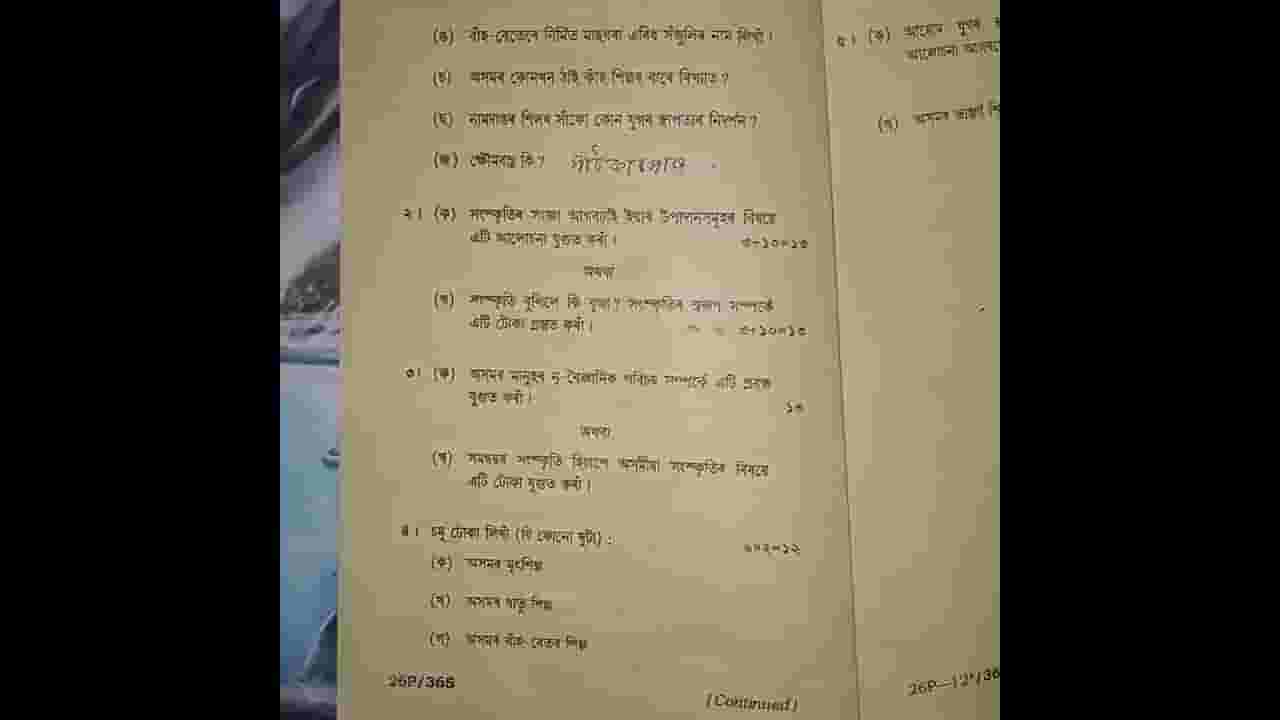 (ঙ) বাঁহ-বেতেৰে নিৰ্মিত মাছমৰা এবিধ সঁজুলিৰ নাম লিখাঁ।
(চ) অসমৰ কোনখন ঠাই কাঁহ শিল্পৰ বাবে বিখ্যাত ?
(ছ) নামদাঙৰ শিলৰ সাঁকো কোন যুগৰ স্থাপত্যৰ নিদৰ্শন ?
(জ) ক্ষৌমবস্ত্ৰ কি ?
২। (ক) সংস্কৃতিৰ সংজ্ঞা আগবঢ়াই ইয়াৰ উপাদানসমূহৰ বিষয়ে
এটি আলোচনা যুগুত কৰাঁ। ৩+১০=১৩
অথবা
(খ) সংস্কৃতি বুলিলে কি বুজা ? সংস্কৃতিৰ স্বৰূপ সম্পৰ্কে
এটি টোকা প্ৰস্তুত কৰাঁ। ৩+১০=১৩
৩। (ক) অসমৰ মানুহৰ নৃ-বৈজ্ঞানিক পৰিচয় সম্পৰ্কে এটি প্ৰবন্ধ
যুগুত কৰাঁ। ১৩
অথবা
(খ) সমন্বয়ৰ সংস্কৃতি হিচাপে অসমীয়া সংস্কৃতিৰ বিষয়ে
এটি টোকা যুগুত কৰাঁ।
৪। চমু টোকা লিখাঁ (যি কোনো দুটা) : ৬×২=১২
(ক) অসমৰ মৃৎশিল্প
(খ) অসমৰ ধাতু শিল্প
(গ) অসমৰ বাঁহ-বেতৰ শিল্প
26P/365
(Continued)
৫। (ক) আহোম যুগৰ
আলোচনা
(খ) অসমৰ ভাস্কৰ্য
26P—12*/36